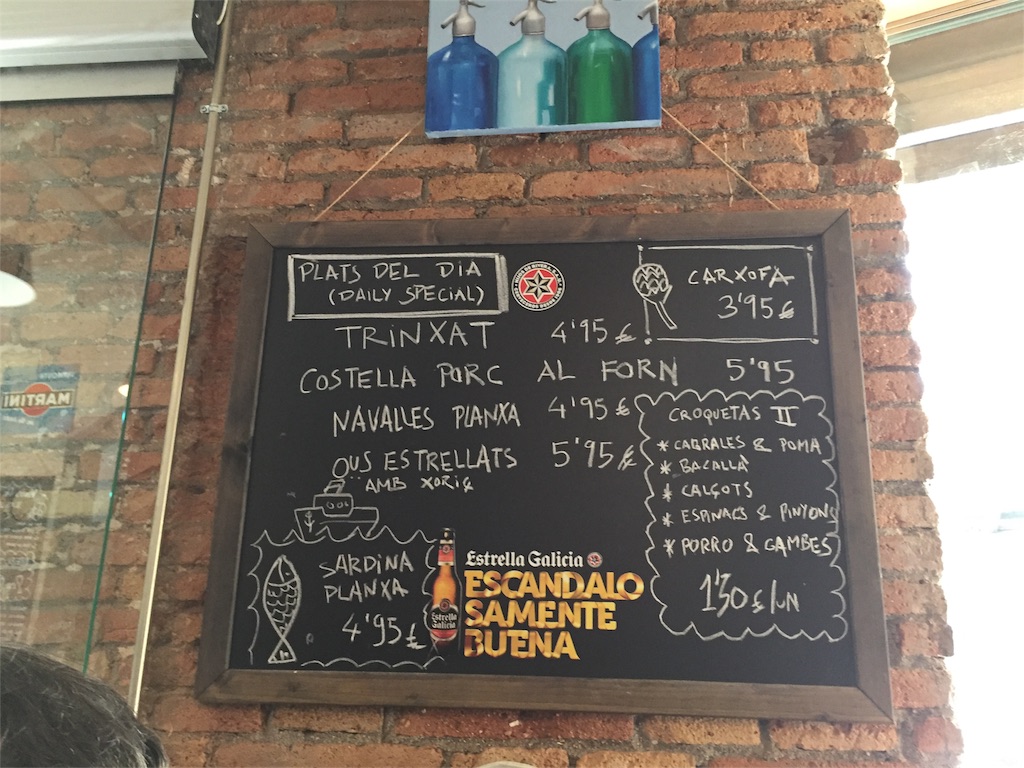 PLATS DEL DIA
(DAILY SPECIAL)
CARXOFA
3'95€
TRINXAT 4'95€
COSTELLA PORC AL FORN 5'95
NAVALLES PLANXA 4'95€
OUS ESTRELLATS 5'95€
AMB XORIÇ
CROQUETAS II
* CABRALES & POMA
* BACALLÀ
* CALÇOTS
* ESPINACS & PINYONS
* PORRO & GAMBES
1'30€/UN
SARDINA
PLANXA
4'95€
Estrella Galicia
ESCANDALO
SAMENTE
BUENA
Estrella
Galicia
MARTINI